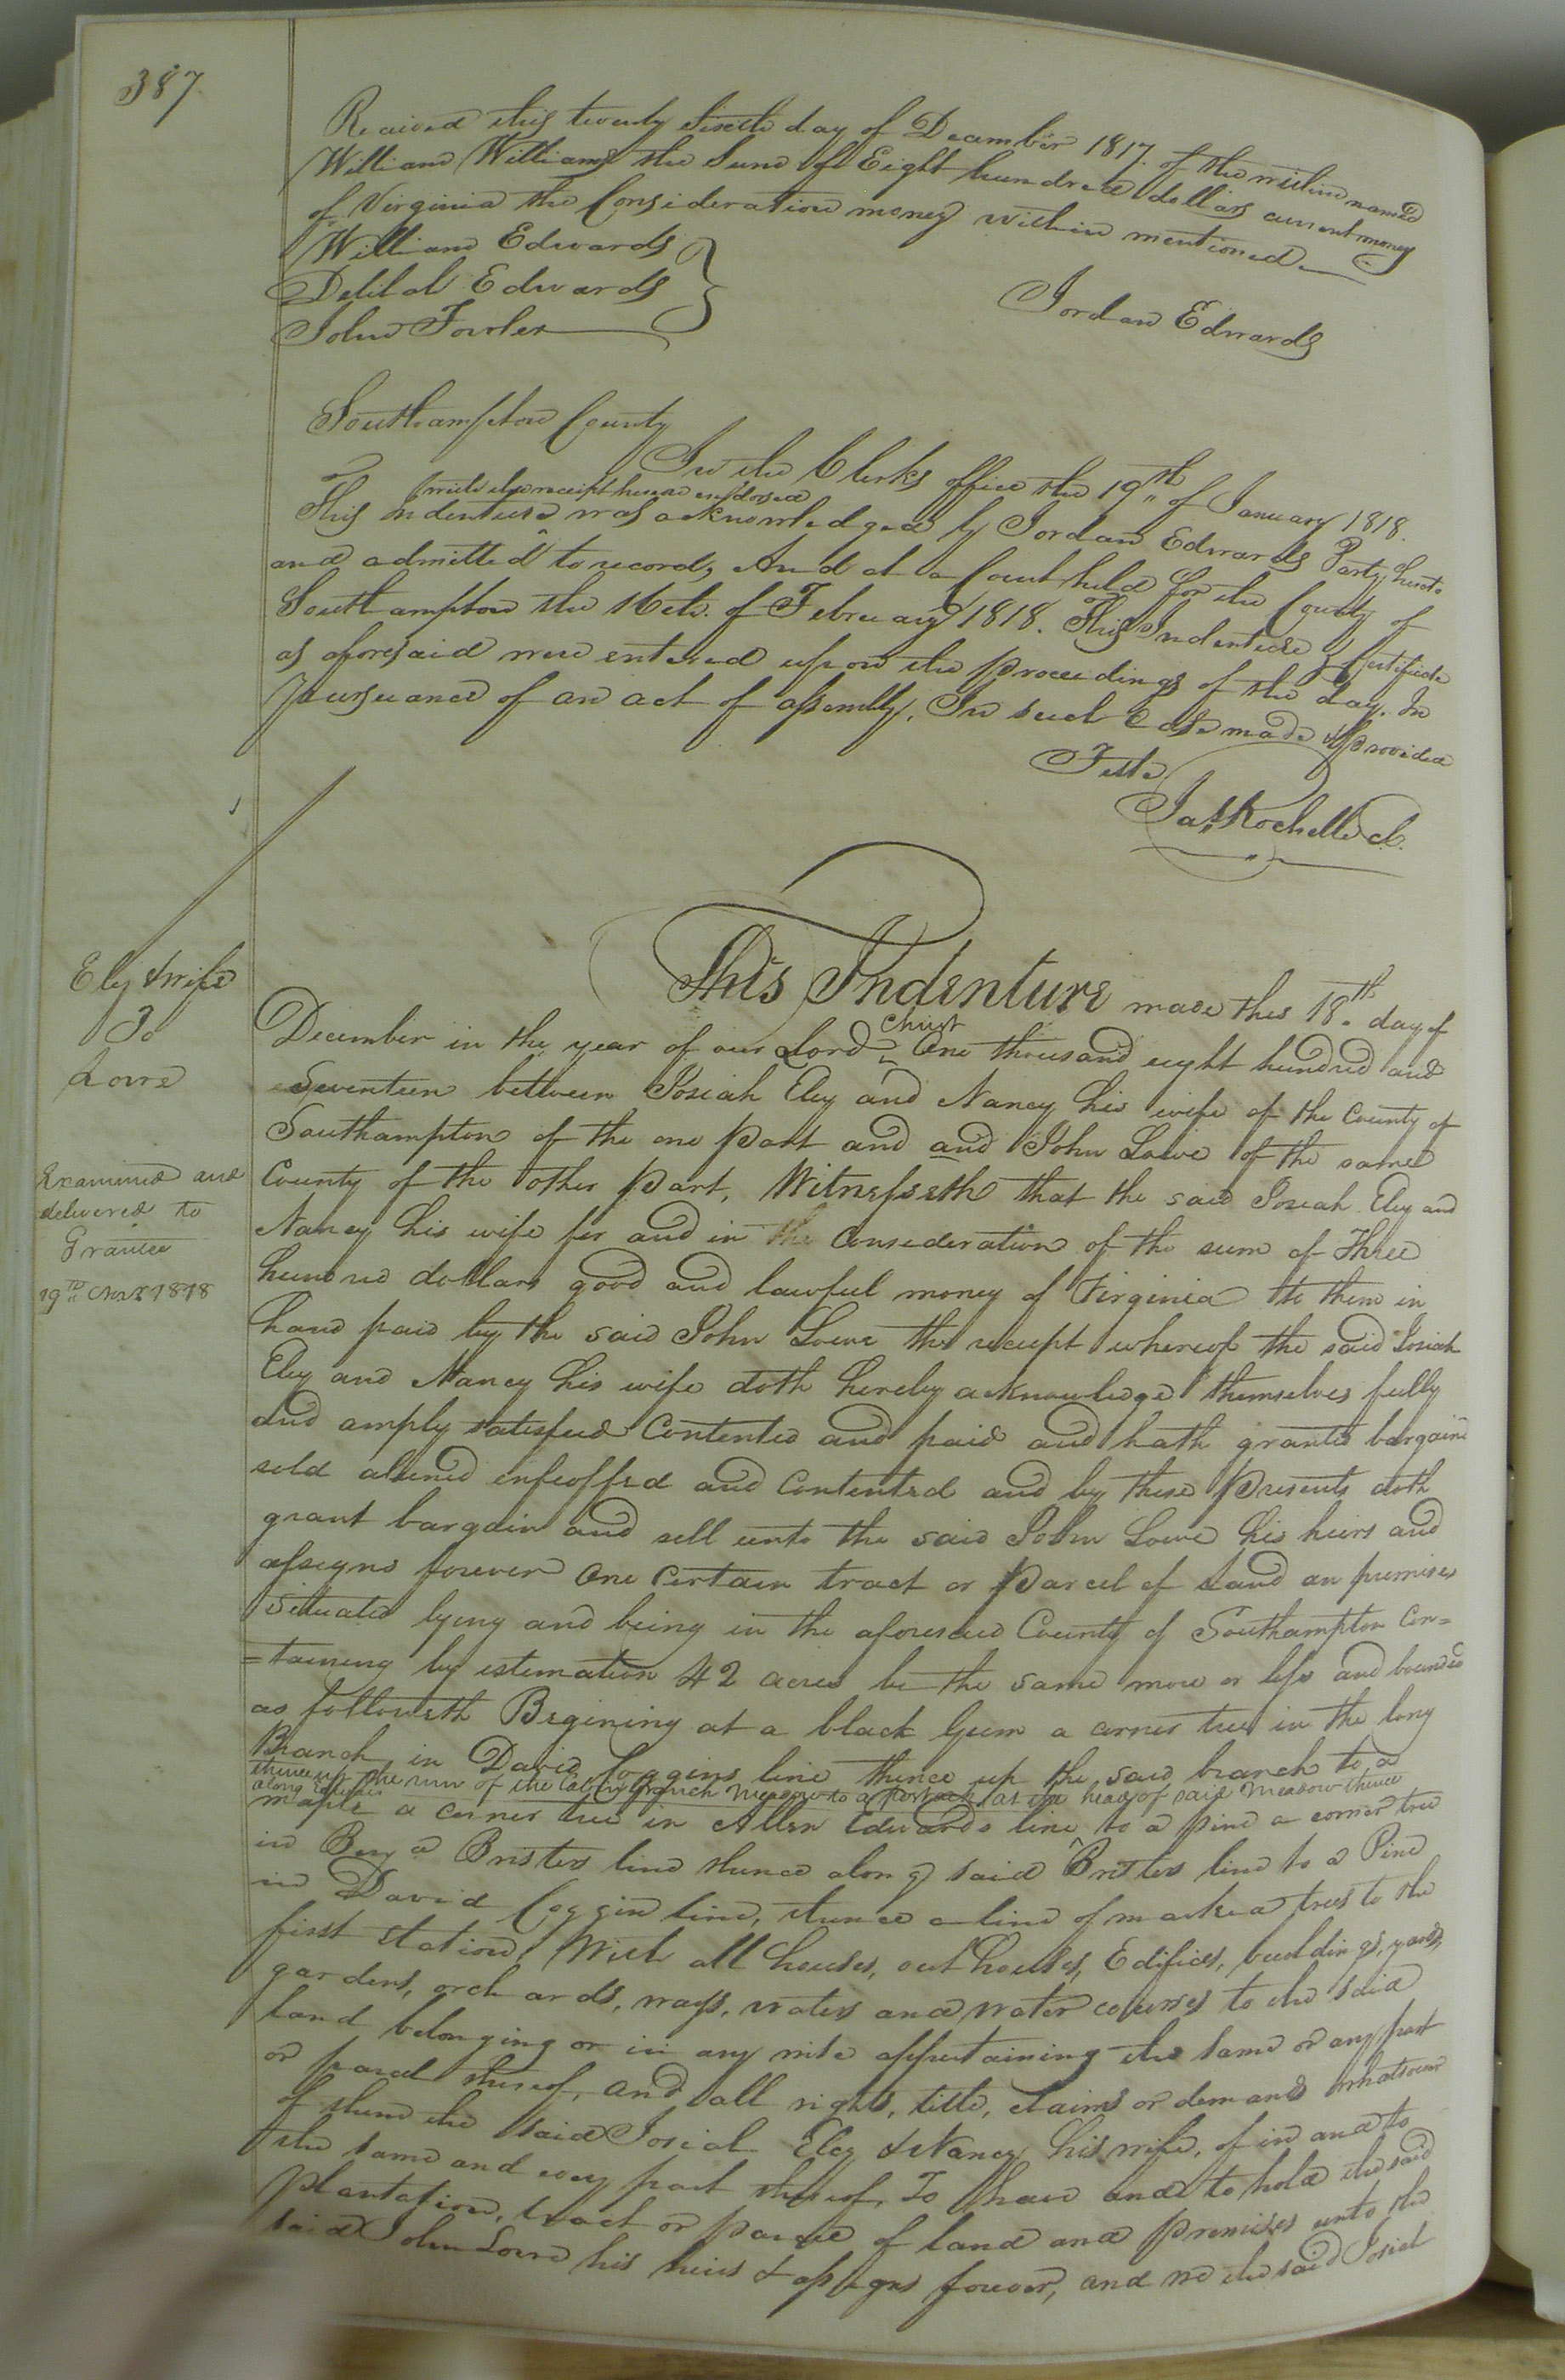 387
Received this twenty sixth day of December 1817. of the within named
William Williams the Sum of Eight hundred dollars current money
of Virginia the Consideration money within mentioned.
William Edwards
Delilah Edwards
John Fowler
Jordan Edwards
Southampton County
In the Clerks office the 19th of January 1818.
(with the receipt hereon endorsed
This Indenture was acknowledged by Jordan Edwards Party hereto
and admitted to record, And at a Court held for the County of
Southampton the 16th. of February 1818. This Indenture & Certificate
as aforesaid were entered upon the proceedings of the day. In
pursuance of an act of assembly, In such case made & provided
Teste
Jas. Rochelle cl.
Ely & wife
To
Lowe
Examined and
delivered to
Grantee
19th 1818
This Indenture made this 18th day of
Christ
December in the year of our Lord One thousand eight hundred and
Seventeen between Josiah Eley and Nancy his wife of the County of
Southampton of the one Part and and John Lowe of the same
County of the other Part, Witnesseth that the said Josiah Eley and
Nancy his wife for and in the Consideration of the sum of Three
hundred dollars good and lawful money of Virginia to them in
hand paid by the said John Lowe the receipt whereof the said Josiah
Eley and Nancy his wife doth hereby acknowledge themselves fully
and amply satisfied Contented and paid and hath granted bargaind
sold aliened enfeoffed and Contented and by these Presents doth
grant bargain and sell unto the said John Lowe his heirs and
assigns forever One Certain tract or Parcel of Land an premises
Situated lying and being in the aforesaid County of Southampton Con=
=taining by estimation 42 acres be the same more or less and bounded
as followeth Begining at a black Gum a corner tree in the long
Branch in David Coggins line thence up the said branch to a
thence up the run of the Cabin Branch Meadow to a Post oak at the head of said Meadow thence
along Edwards
maple a corner tree in Allen Edwards line to a pine a corner tree
in Benj a Bristers line thence along said Bristers line to a Pine
in David Coggin line, thence a line of marked trees to the
first station, With all houses, out houses, Edifices, buildings, yards,
gardens, orchards, ways, waters and water courses to the said
land belonging or in any wise appertaining the same or any part
or parcel thereof, and all rights, title, claims or demands whatsoever
of them the said Josiah Eley & Nancy his wife, of in and to
the same and every part thereof, To have and to hold the said
Plantation, tract or parcel of land and premises unto the
said John Lowe his heirs & assigns forever, and we the said Josiah